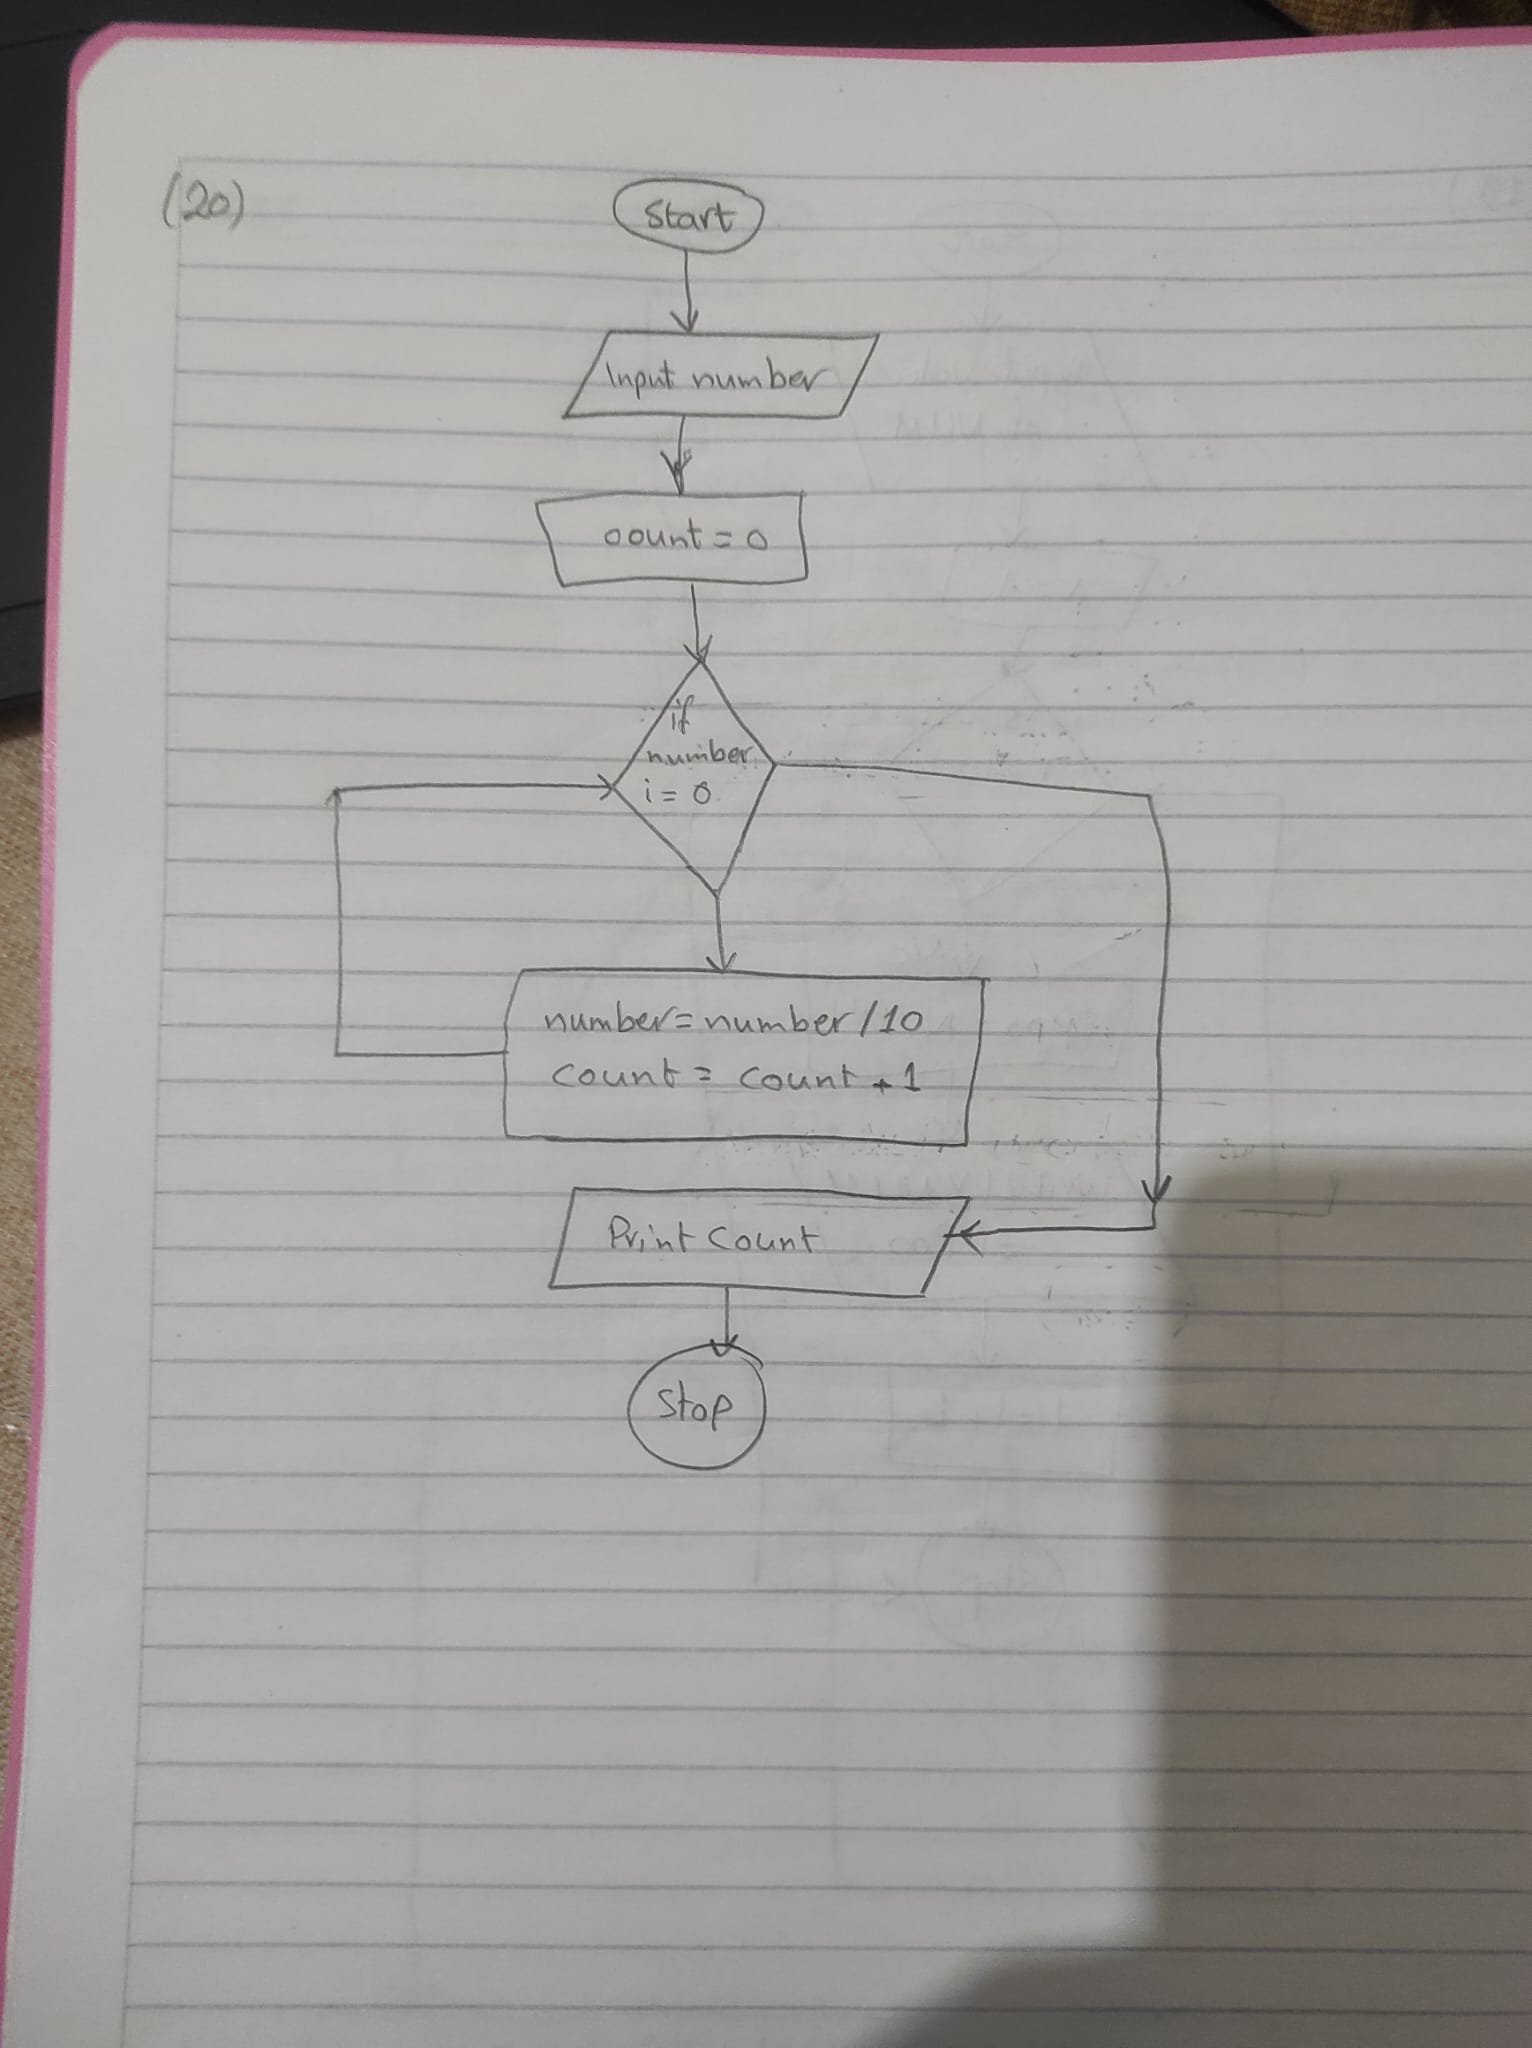 (20)
Start
Input number
count = 0
if
number
i = 0
number = number / 10
count = count + 1
Print Count
Stop